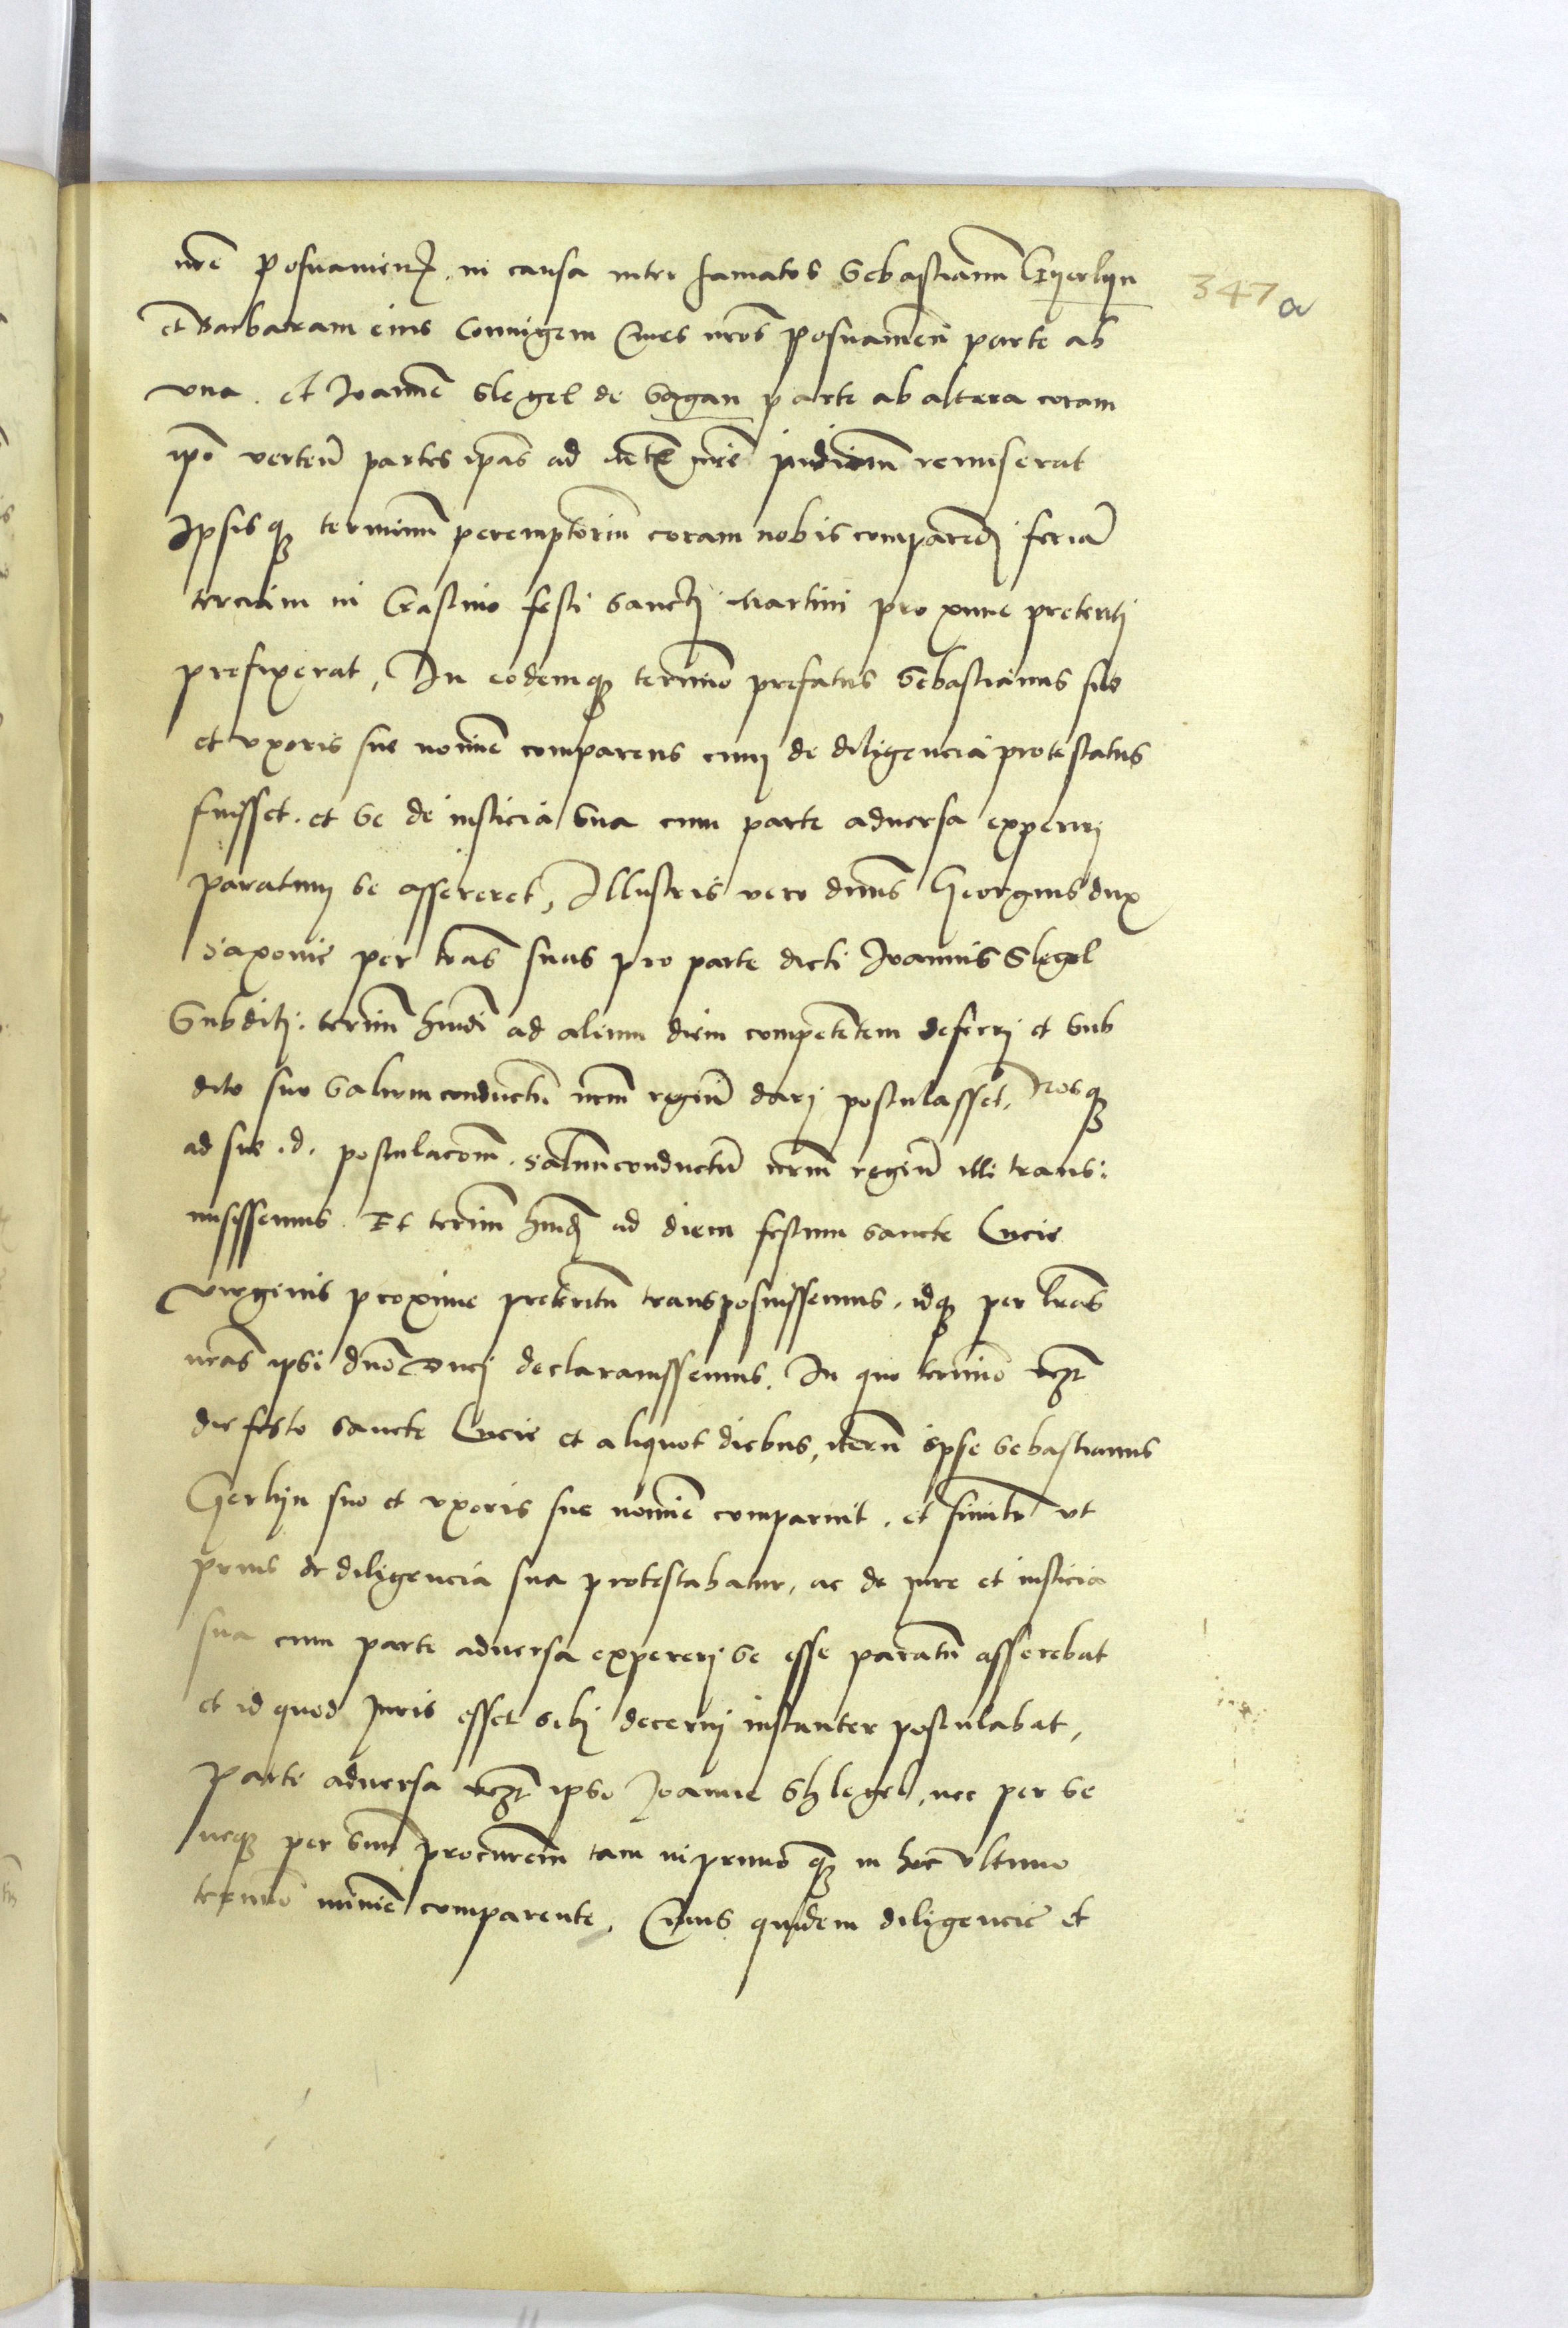 nre Posnanien. in causa inter famatos Sebastianum Gyerlyn
347 a
et Barbaram eius Coniugem Cives nros Posnanien parte ab
una. et Joanne Slegel de Sagan parte ab altera coram
ipo verten partes ipas ad nre judicium remiserat
Ipsisque terminum peremptorium coram nobis comparendi feria
terciam in Crastino festi Sancti Martini proxime preteriti
prefixerat, In eodemque termino prefatus Sebastianus suo
et uxoris sue nomine comparens cum de diligencia protestatus
fuisset. et se de iusticia Sua cum parte adversa experiri
paratum se assereret, Illustris vero dnus Georgius dux
Saxonie per lras suas pro parte dicti Joannis Slegel
Subditi. terminum hmdi ad alium diem competentem deferri et Sub
dito suo Salvumconductum nrum regium dari postulasset. Nosque
ad sue .d. postulacom. Salvumconductum nrum regium illi trans.
misissemus. Et terminum hmdi ad diem festum sancte Lucie
virginis proxime preteritum transposuissemus. idque per lras
nras ipsi dno Duci declaravissemus. In quo termino vezt
die festo Sancte Lucie et aliquot diebus, iterum ipse Sebastianus
Gerlyn suo et uxoris sue nomine comparuit. et similiter ut
prius de diligencia sua protestabatur. ac de jure et iusticia
sua cum parte adversa expereri se esse paratum asserebat
et id quod Juris esset sibi decerni instanter postulabat,
Parte adversa vezt ipso Joanne Shlegel, nec per se
neque per Suum procurem tam in primo quam in hoc ultimo
termino minime comparente. Cuius quidem diligencie et